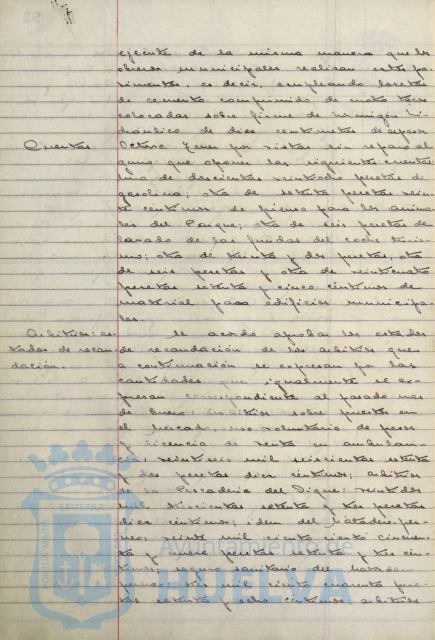 ejecute de la misma manera que los
obreros municipales realizan estos pa-
vimentos, es decir, empleando losetas
de cemento comprimido de
colocadas sobre firme de hormigón hi-
dráulico de diez centímetros de espesor
Cuentas
Octavo. Tener por vistas sin reparo al-
guno que oponer las siguientes cuentas:
una de doscientas veintiocho pesetas de
gasolina; otra de setenta pesetas vein-
te céntimos de pienso para los anima-
les del Parque; otra de seis pesetas de
lavado de las fundas del coche turis-
mo; otra de treinta y dos pesetas; otra
de seis pesetas y otra de veinticuatro
pesetas setenta y cinco céntimos de
material para edificios municipa-
les.
Arbitrios: es-
tados de recau-
dación.
Se acordó aprobar los estados
de recaudación de los arbitrios que
a continuación se expresan por las
cantidades que igualmente se ex-
presan correspondiente al pasado mes
de Enero: Arbitrios sobre puestos en
el Mercado, uso voluntario de pesas
y licencia de venta en ambulan-
cia, veintiún mil seiscientas setenta
y dos pesetas diez céntimos; arbitrios
de la Pescadería del Dique: veintidós
mil setenta y tres pesetas
diez céntimos; idem del Matadero
veinte mil ciento cincuen-
ta y nueve pesetas setenta y tres cén-
timos; seguro sanitario del Matadero
mil ciento cuarenta pese-
tas setenta y ocho céntimos; arbitrios
Ayuntamiento de
HUELVA